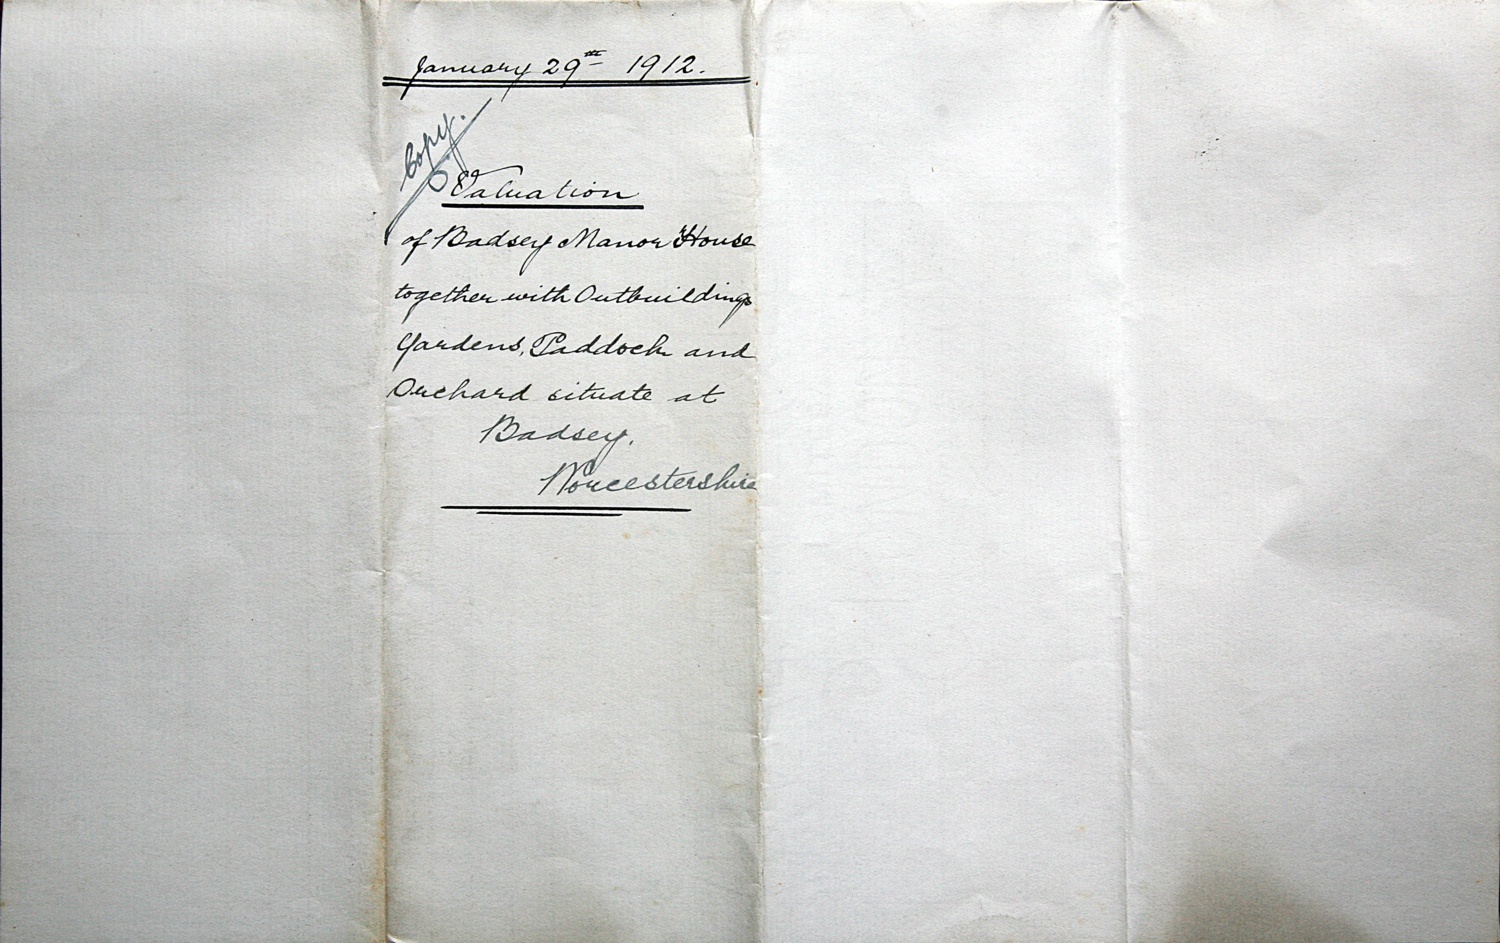 January 29th 1912.
Copy.
Valuation
of Badsey Manor House
together with Outbuildings
Gardens, Paddock and
Orchard situate at
Badsey,
Worcestershire